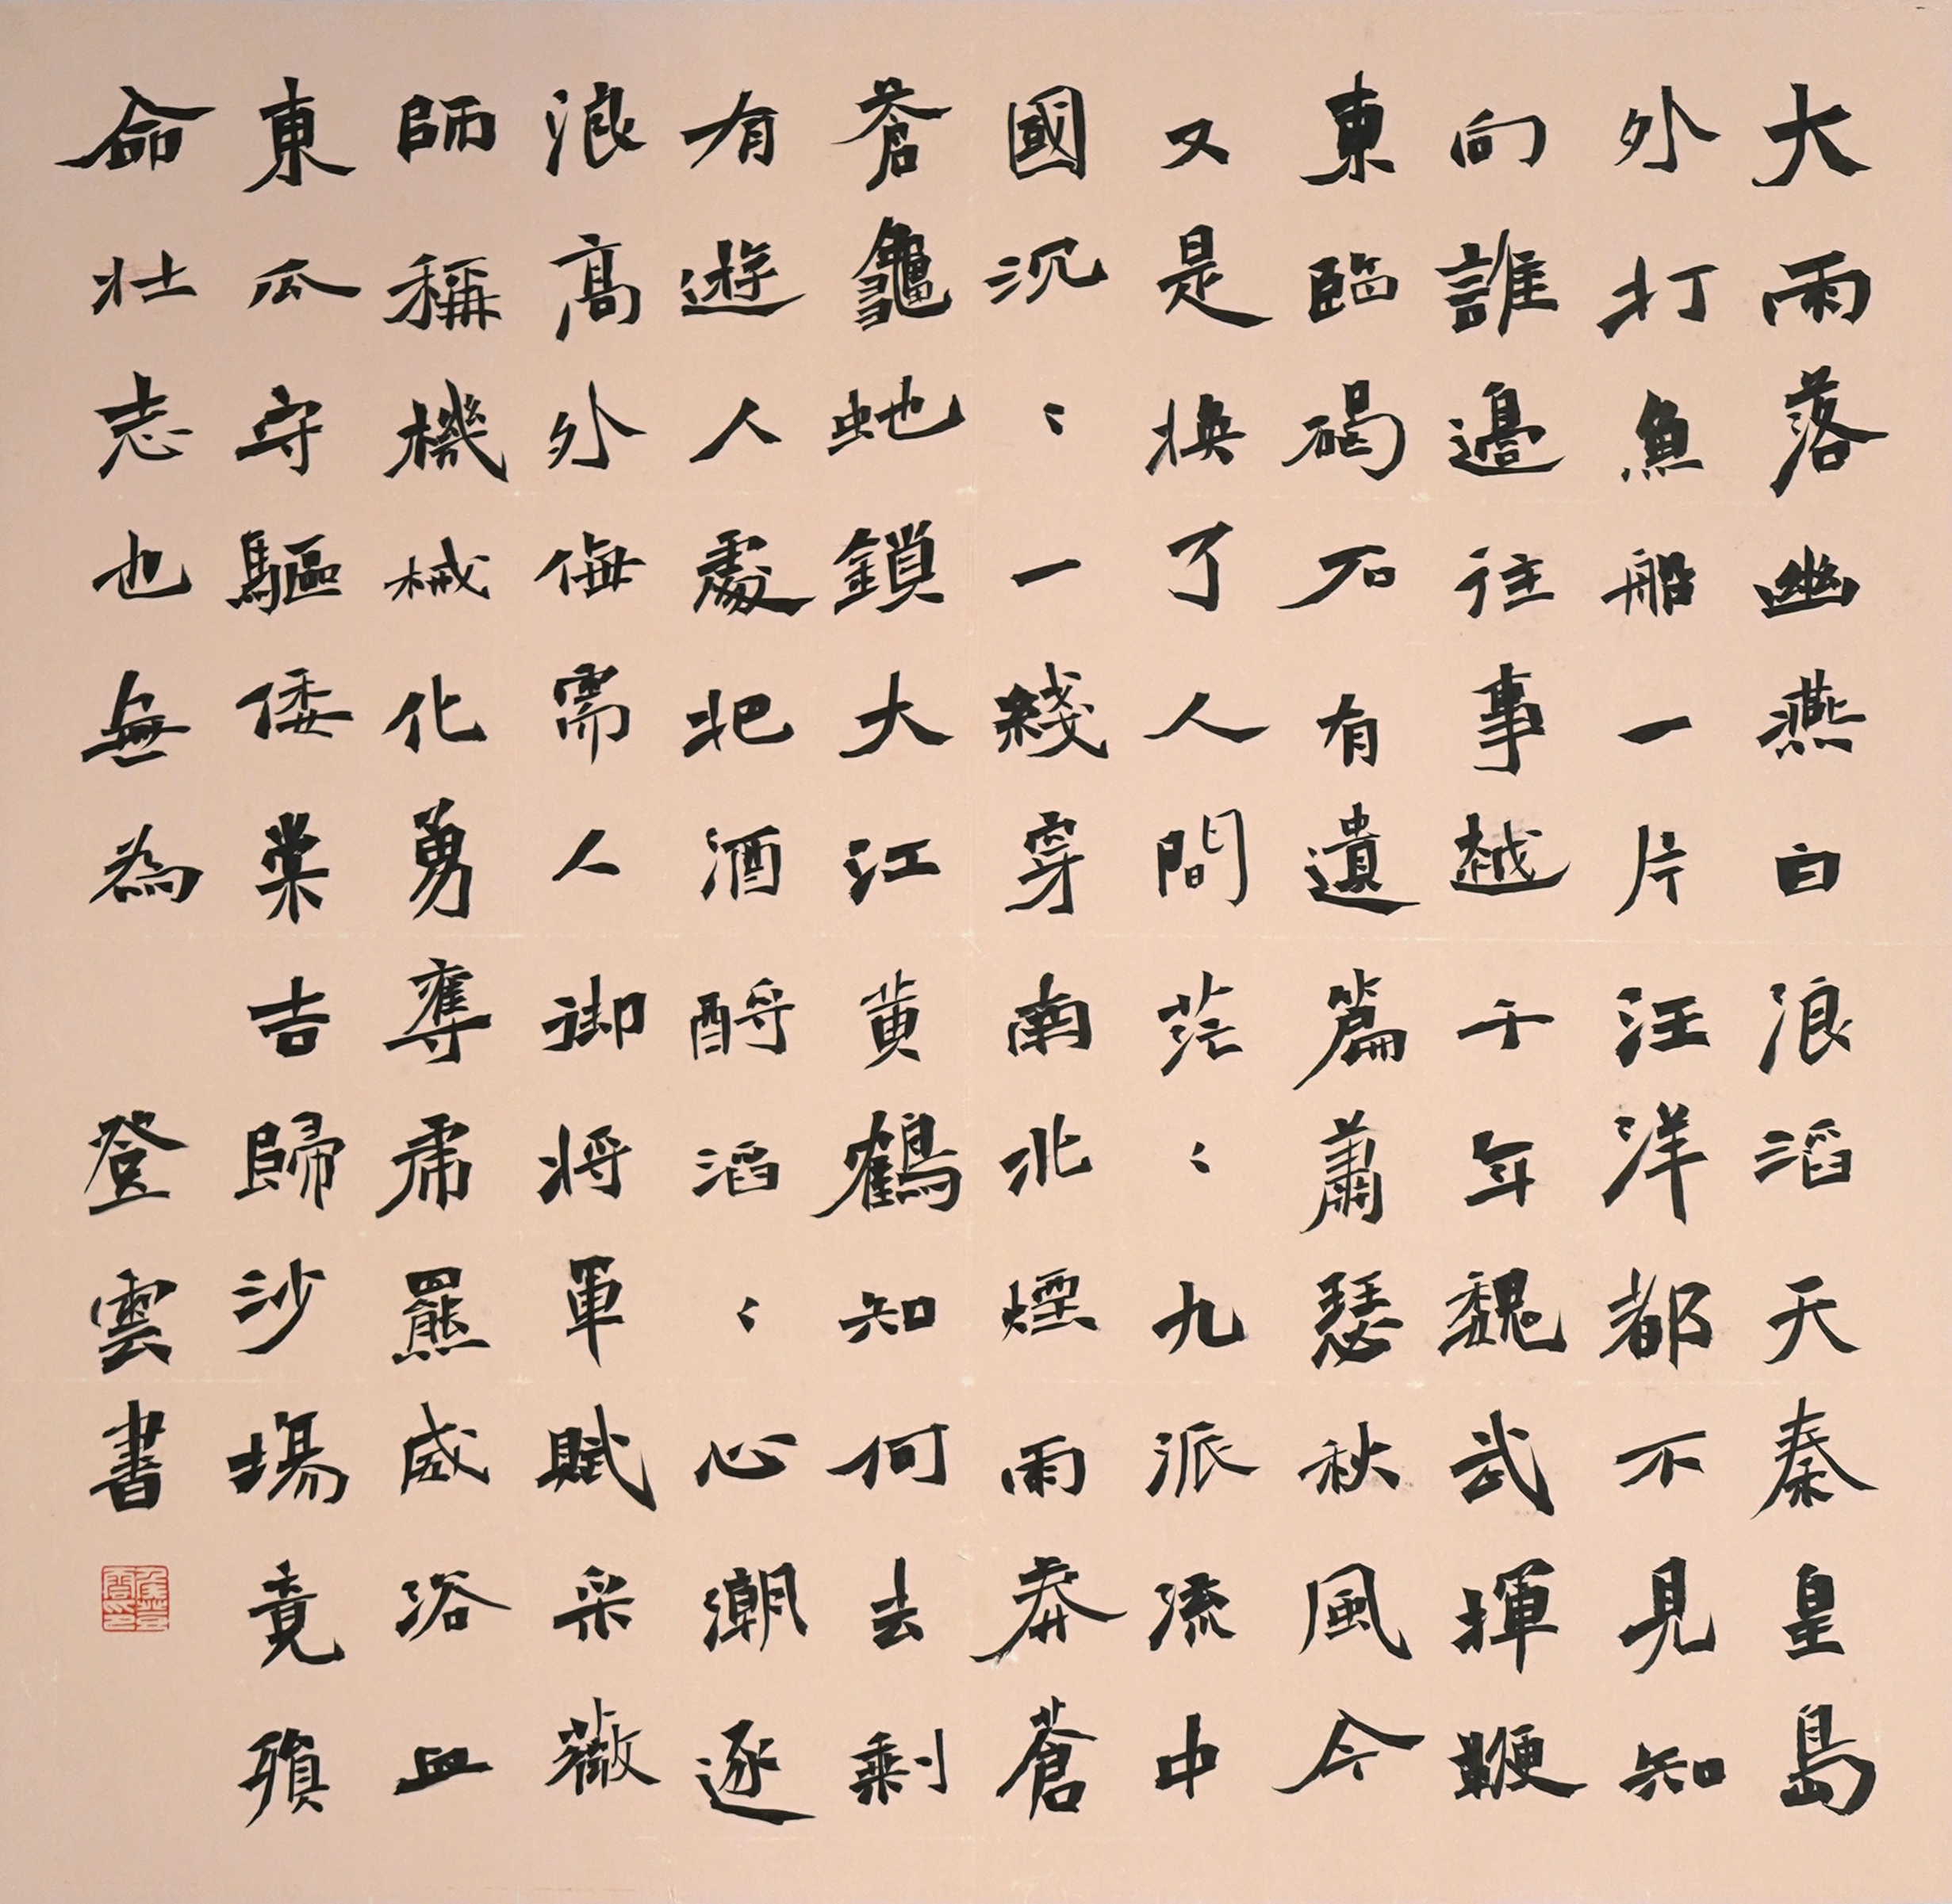 大雨落幽燕白浪滔天秦皇島
外打魚船一片汪洋都不見知
向誰邊往事越千年魏武揮鞭
東臨碣石有遺篇蕭瑟秋風今
又是換了人間茫〻九派流中
國沉〻一綫穿南北煙雨莽蒼
蒼龜虵鎖大江黃鶴知何去剩
有遊人處把酒酹滔〻心潮逐
浪高外侮需人御將軍賦采薇
師稱機械化勇奪虎羆威浴血
東瓜守驅倭棠吉歸沙場竟殞
命壯志也無為 登雲書